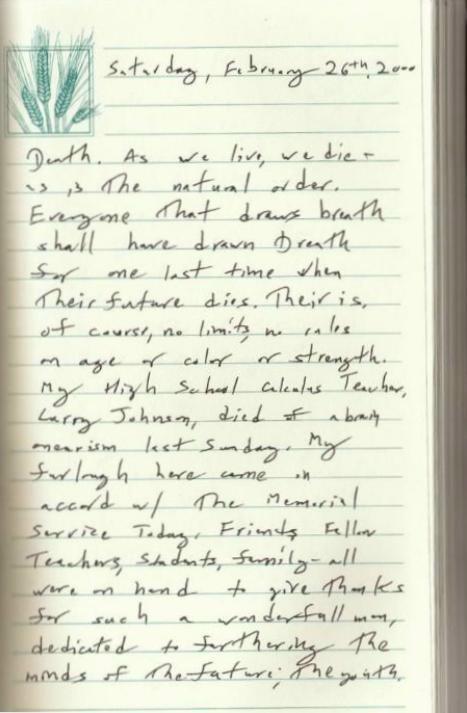 Saturday, February 26th, 2000
Death. As we live, we die -
is is The natural order.
Everyone That draws breath
shall have drawn Breath
for one last time when
Their future dies. Their is,
of course, no limits, no rules
on age or color or strength.
My High School Calculus Teacher,
Larry Johnson, died of a brain
aneurism last Sunday. My
furlough here came in
accord w/ The Memorial
Service Today. Friends, Fellow
Teachers, Students, family - all
were on hand to give thanks
for such a wonderfull man,
dedicated to furthering The
minds of The future; The youth.